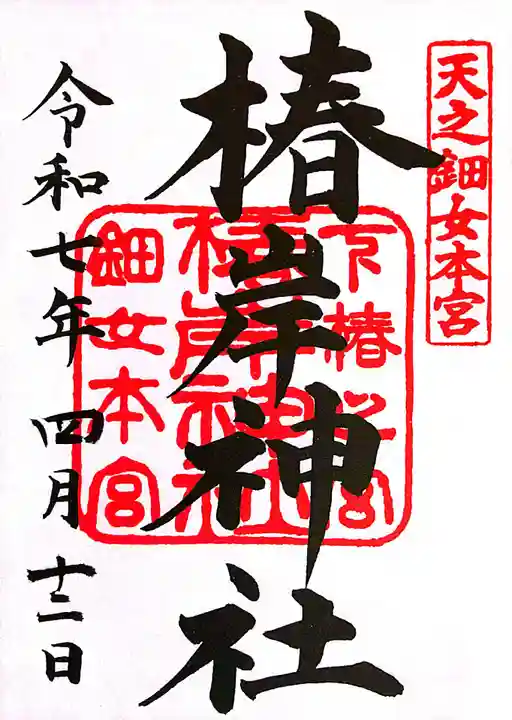 天之鈿女本宮
椿岸神社
下椿之宮
椿岸神社
鈿女本宮
令和七年四月十二日